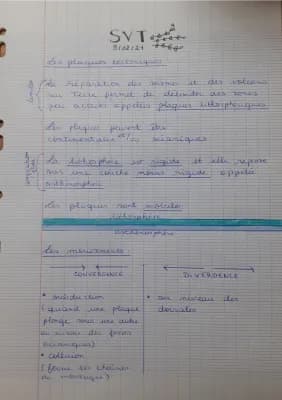 SVT
Les plaques tectoniques
La répartition des séismes et des volcans
sur Terre permet de délimiter des zones
peu actives appelées plaques lithosphériques.
Les plaques peuvent être
continentales et/ou océaniques
La lithosphère est rigide et elle repose
sur une couche moins rigide appelée
asthénosphère
Les plaques sont mobiles
lithosphère
asthénosphère
Les mouvements
CONVERGENCE
DIVERGENCE
• subduction
(quand une plaque
plonge sous une autre
au niveau des fosses
océaniques)
• Collision
(forme les chaînes
de montagne)
• au niveau des
dorsales